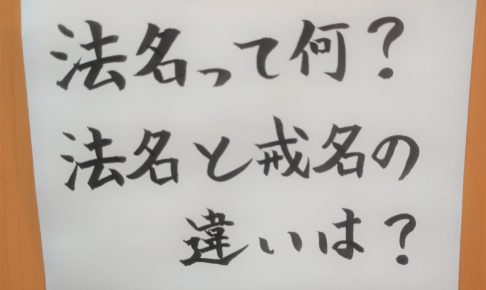 法名って何?
法名と戒名の
違いは?